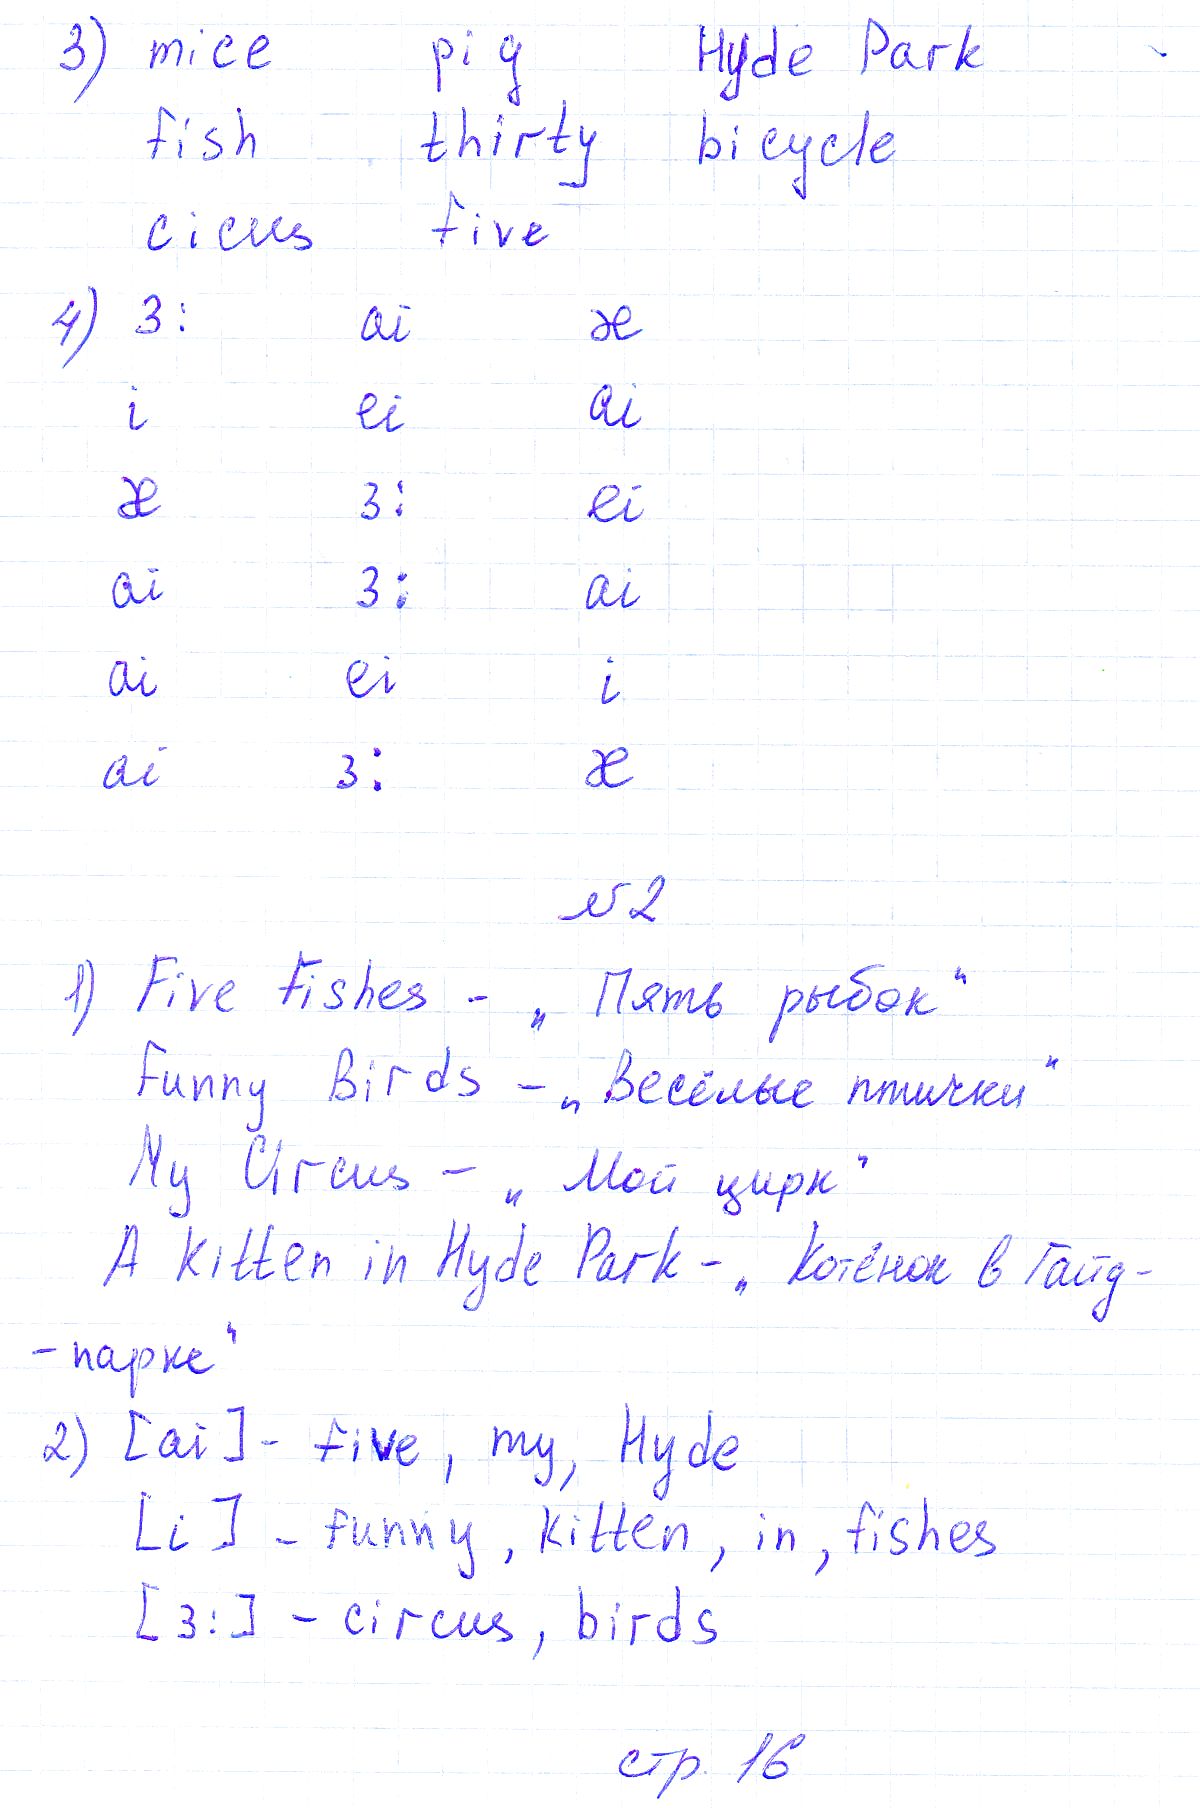 3) mice pig Hyde Park
fish thirty bicycle
cicus five
4) 3: ai æ
i ei ai
æ 3: ei
ai 3: ai
ai ei i
ai 3: æ
№2
1) Five Fishes - „Пять рыбок“
Funny Birds - „Весёлые птички“
My Circus - „Мой цирк“
A kitten in Hyde Park - „Котёнок в Гайд-
-парке“
2) [ai] - five, my, Hyde
[i] - funny, kitten, in, fishes
[3:] - circus, birds
стр. 16